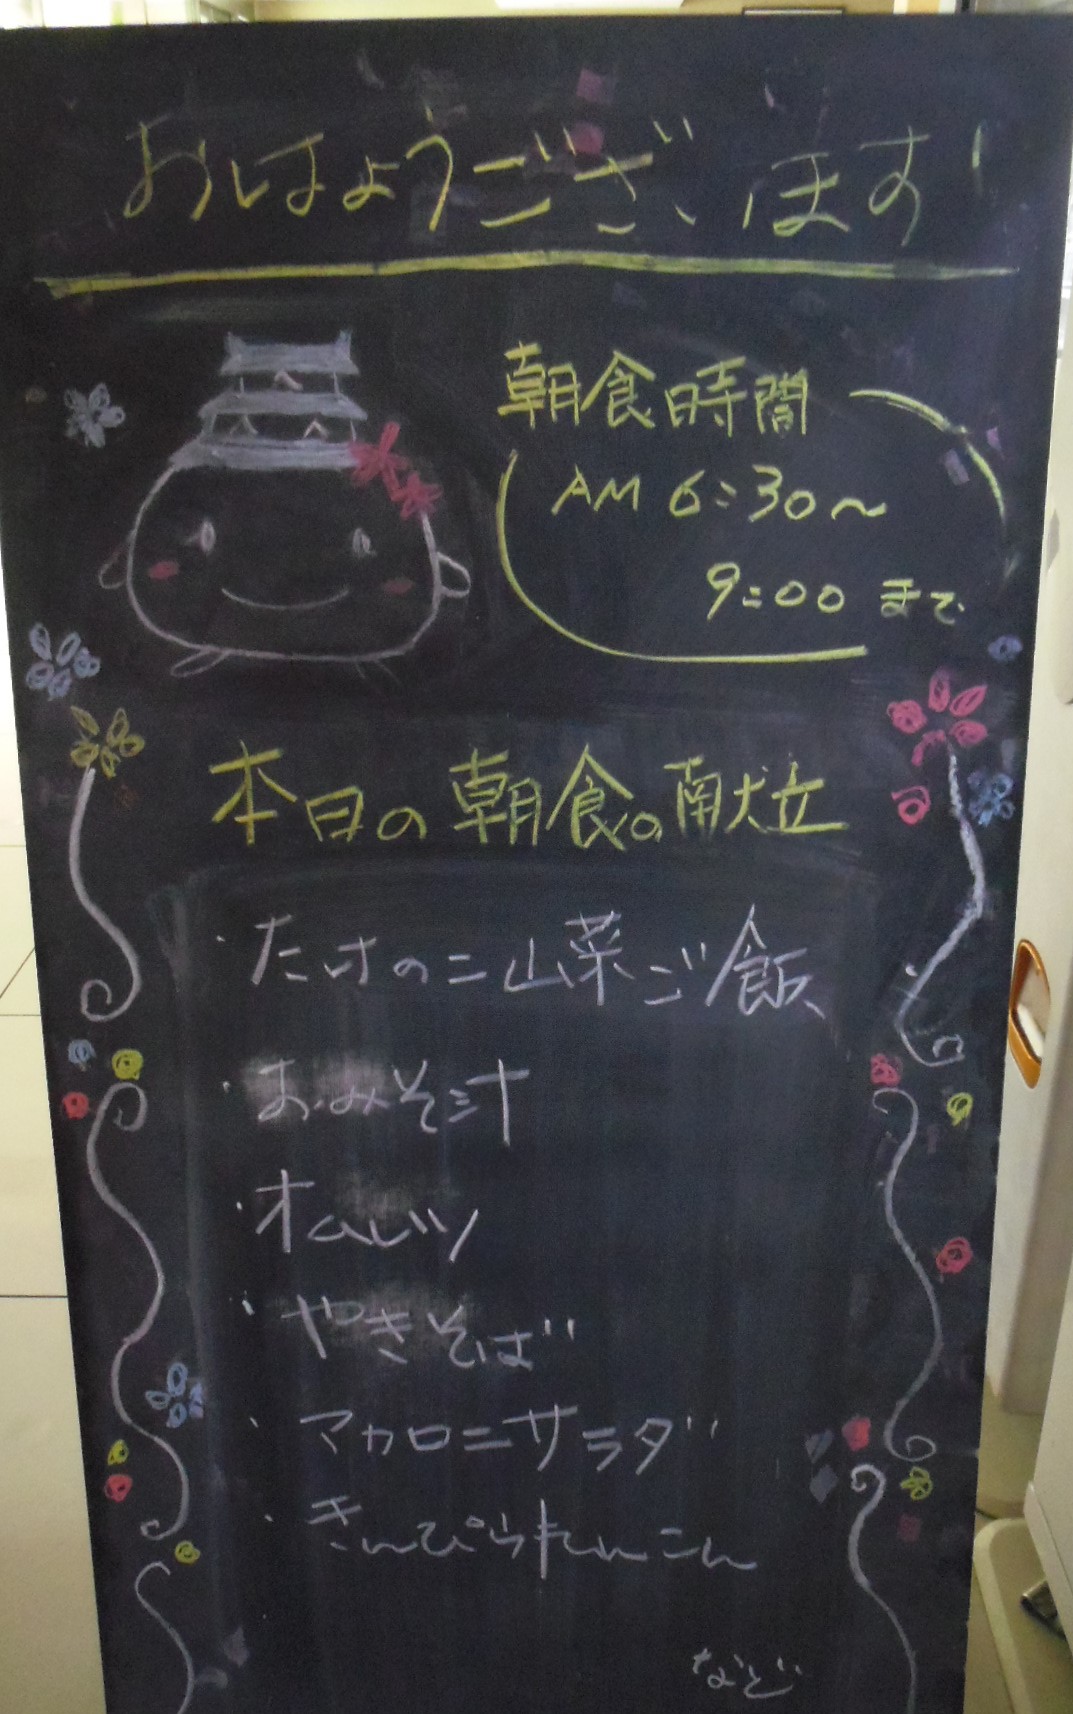 おはようございます!
朝食時間
AM 6:30～
9:00 まで
本日の朝食の献立
・たけのこ山菜ご飯
・おみそ汁
・オムレツ
・やきそば
・マカロニサラダ
・きんぴられんこん
など